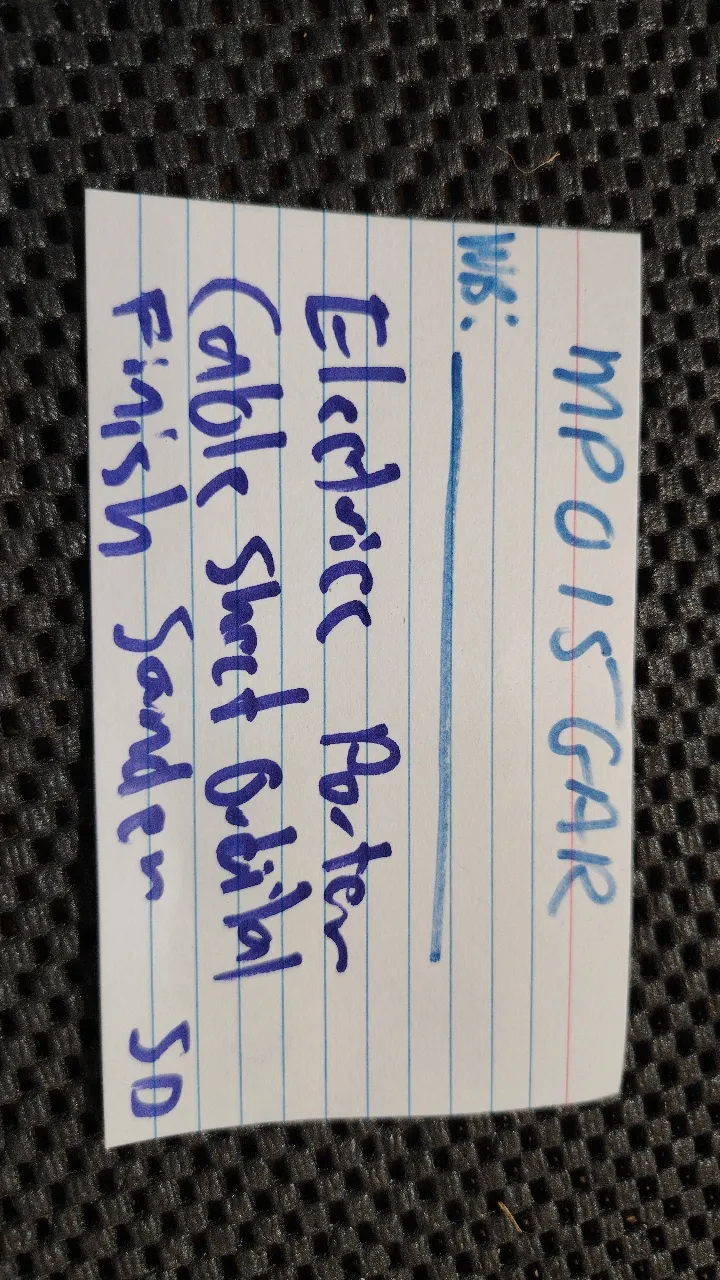 MP015GAR
WB:
Electricc Porter
Cable Sheet Orbital
Finish Sander SD